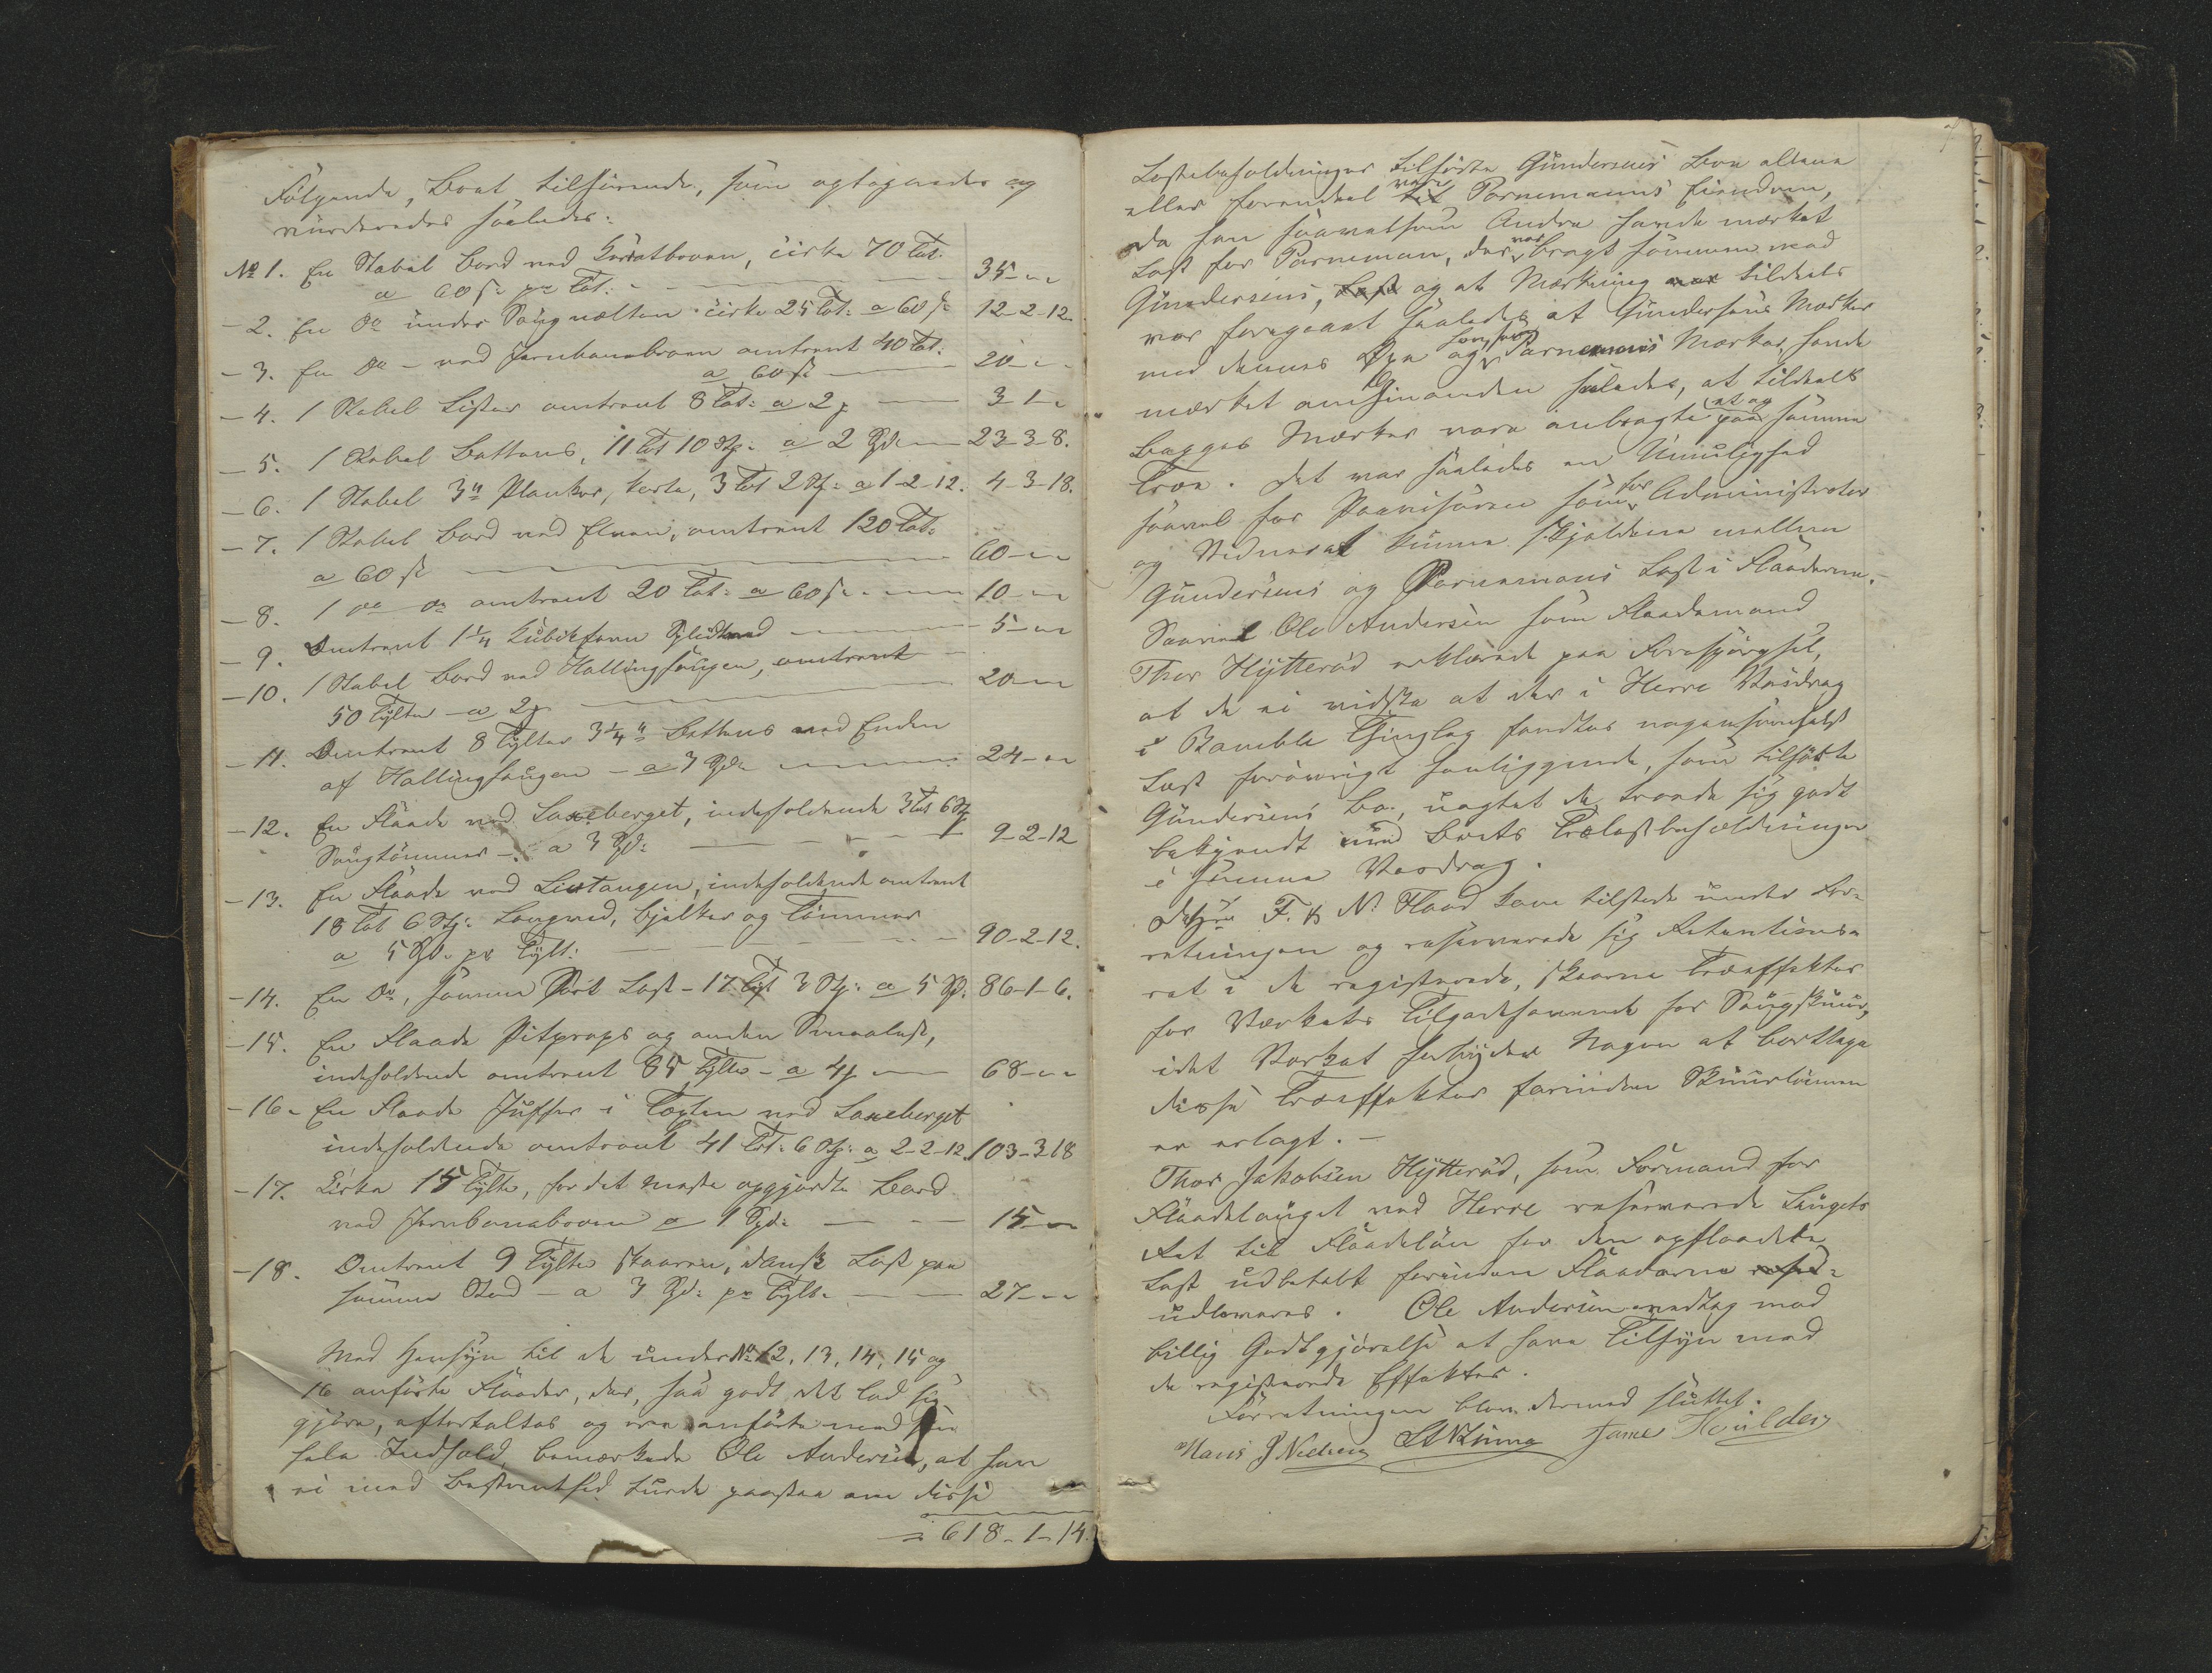 Følgende, Boet tilhørende, som optoges og
vurderedes saaledes:
No 1. En Stabel Bord ved Kørratbroen, cirka 70 Tlt.
a 60 s. pr Tlt: 35 - "
- 2. En Do under Saugvælten cirka 25 Tlt: a 60 s 12-2-12.
- 3. En Do - ved Jernbanebroen omtrent 40 Tlt.
a 60 s 20 - "
- 4. 1 Stabel Lister omtrent 8 Tlt: a 2 3 1 - "
- 5. 1 Stabel Battens, 11 Tlt 10 St: a 2 Spd. 23-3-8.
- 6. 1 Stabel 3" Planker, korte, 3 Tlt 2 St: a 1-2-12. 4-3-18.
- 7. 1 Stabel Bord ved Elven, omtrent 120 Tlt:
a 60 s 60 - "
- 8. 1 do do omtrent 20 Tlt: a 60 s. 10 - "
- 9. Omtrent 1 1/4 Kubikfavn 5 - "
- 10. 1 Stabel Bord ved Hallingsaugen, omtrent
50 Tylter a 2 20 - "
- 11. Omtrent 8 Tylter 3 1/4" Battens ved Enden
af Hallingsaugen - a 3 Spd. 24 - "
- 12. En Flaade ved Laxeberget, indeholdende 3 Tlt 6 St
Saugtømmer - a 3 Spd: 9-2-12
- 13. En Flaade ved Listangen, indeholdende omtrent
18 Tlt 6 St: Langved, Bjelker og Tømmer
a 5 Spd. pr Tylt: 90-2-12.
- 14. En Do, samme Sort Last - 17 Tlt 3 St: a 5 Sp. 86-1-6.
- 15. En Flaade Pitprops og anden Smaalast,
indeholdende omtrent 85 Tylter - a 4 68 - "
- 16. En Flaade Juffer i Bogten ved Laxeberget
indeholdende omtrent 41 Tlt: 6 St: a 2-2-12. 103-3-18
- 17. Cirka 15 Tylter, for det meste opgjordte Bord
ved Jernbanebroen a 1 Spd: 15 - "
- 18. Omtrent 9 Tylter skaaren, dansk Last paa
samme Sted - a 3 Spd: pr Tylt. 27 - "
Med Hensyn til de under No 12, 13, 14, 15 og
16 anførte Flaader, der, saa godt det lod sig
gjøre, eftertaltes og ere anførte med sin
hele Indhold, bemærkede Ole Andersen, at han
ei med Bestemthed turde paastaa om disse
= 618-1-14.
Lastebeholdninger tilhørte Gundersens Bo alene
eller forendeel vare Pornemanns Eiendom,
da han saavelsom Andre havde mærket
Last for Porneman, der var bragt sammen med
Gundersens, Last og at Mærkning var tildeels
var foregaaet saaledes at Gundersens Mærker
med dennes Øxe og Pornemanns Mærker, havde
mærket om hinanden saaledes, at tildeels
begges Mærker vare anbragte paa samme
Træe. Det var saaledes en Umulighed
saavel for Prøvisoren som for Administrator
og Vidner at kunne skjeldne mellem
Gundersens og Pornemans Last i Flaaderne.
Saavel Ole Andersen som Flaademand
Thor Hytterød erklærede paa Forespørgsel,
at de ei vidste at der i Herre Vasdrag
i Bamble Thinglag fandtes nogensomhelst
Last forøvrigt henliggende, som tilhørte
Gundersens Bo, uagtet de troede sig godt
bekjendt med Boets Trælastbeholdninger
i samme Vasdrag.
F. & N. Flood kom tilstede under For-
retningen og reserverede sig Retentions-
ret i de registrerede, skaarne Træeffekter
for Værkets Tilgodehavende for Saugskuur,
idet Værket forbyder Nogen at borttage
disse Træeffekter forinden Skuurlønnen
er erlagt. -
Thor Jakobsen Hytterød, som Formand for
Flaadelauget ved Herre reserverede Laugets
Ret til Flaadeløn for den opflaadede
Last udbetalt forinden Flaaderne
udleveres. Ole Andersen modtog mod
billig Godtgjørelse at have Tilsyn med
de registrerede Effekter.
Forretningen blev dermed sluttet.
Hans J Nielsen